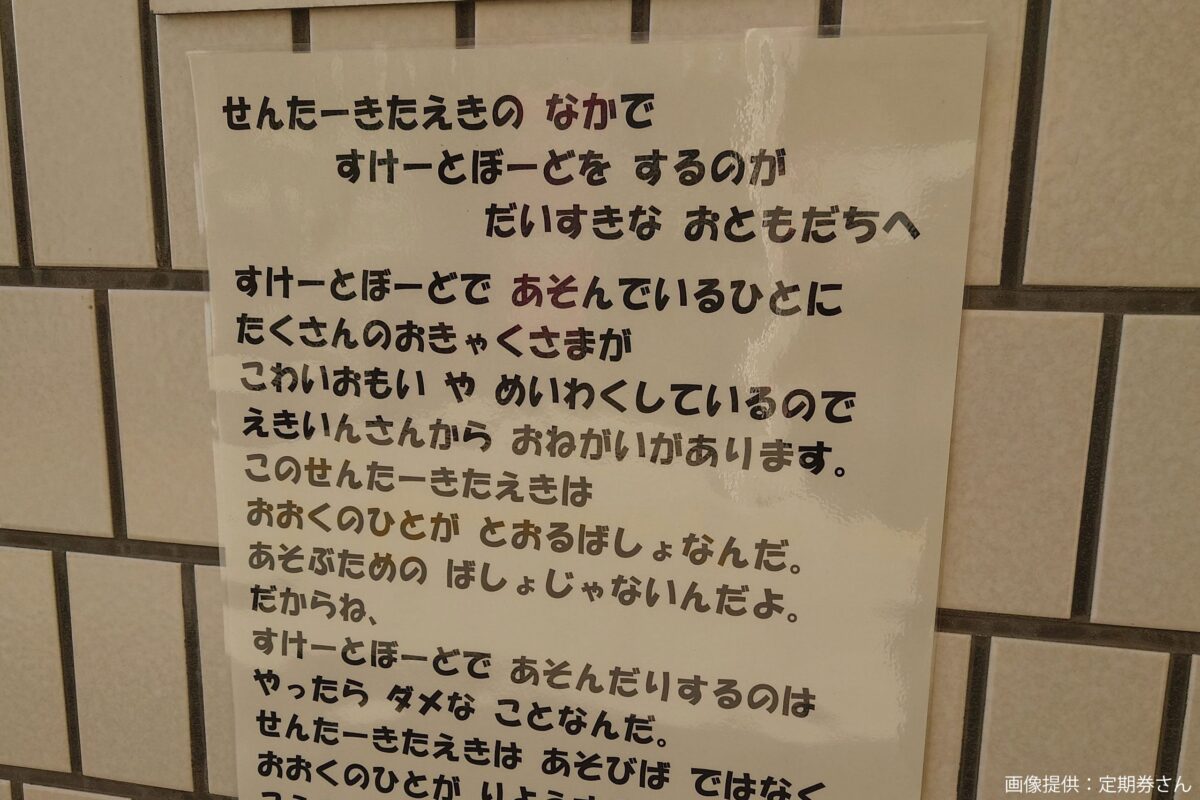 せんたーきたえきの なかで
すけーとぼーどを するのが
だいすきな おともだちへ
すけーとぼーどで あそんでいるひとに
たくさんのおきゃくさまが
こわいおもい や めいわくしているので
えきいんさんから おねがいがあります。
このせんたーきたえきは
おおくのひとが とおるばしょなんだ。
あそぶための ばしょじゃないんだよ。
だからね、
すけーとぼーどで あそんだりするのは
やったら ダメな ことなんだ。
せんたーきたえきは あそびば ではなく
おおくのひとが りようす
画像提供：定期券さん